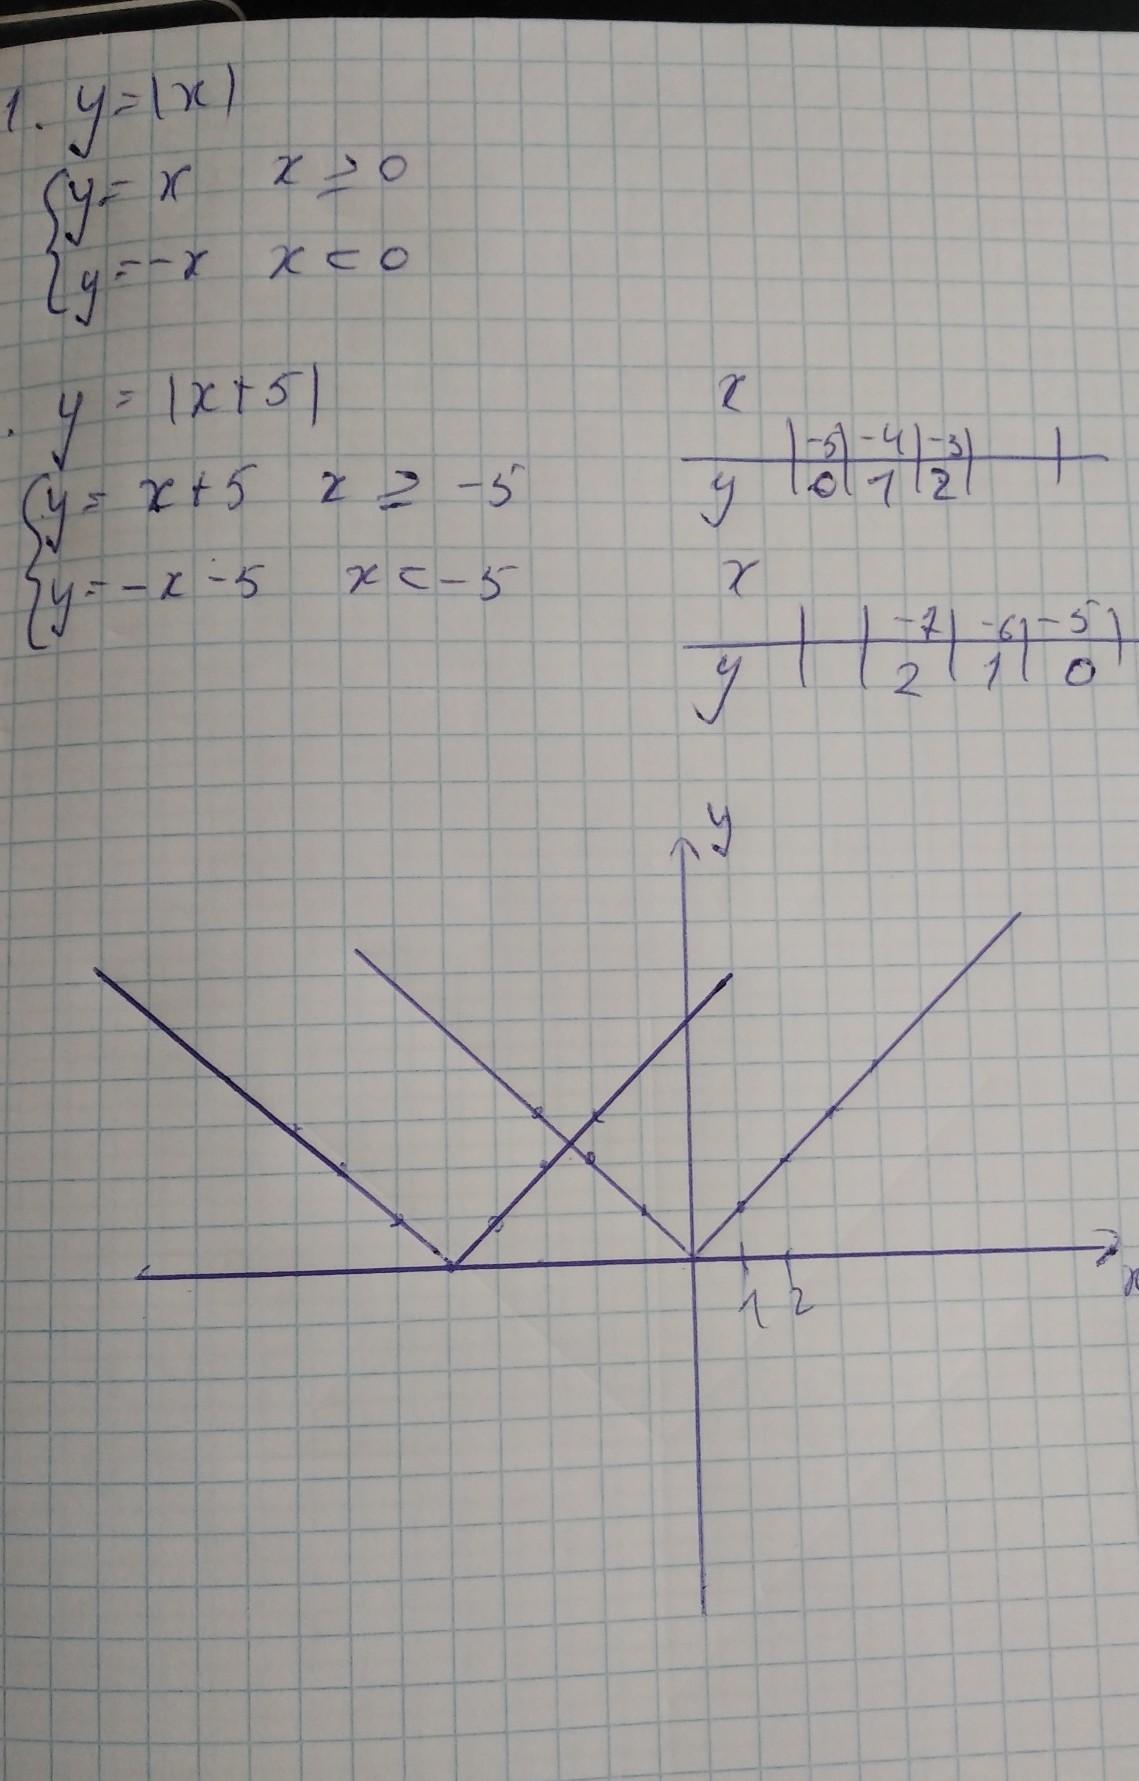 1. y = |x|
{ y = x x ≥ 0
{ y = -x x < 0
. y = |x+5|
{ y = x+5 x ≥ -5
{ y = -x-5 x < -5
x | -5 | -4 | -3 | |
y | 0 | 1 | 2 | |
x | | | -7 | -6 | -5 |
y | | | 2 | 1 | 0 |
y
x
1 2